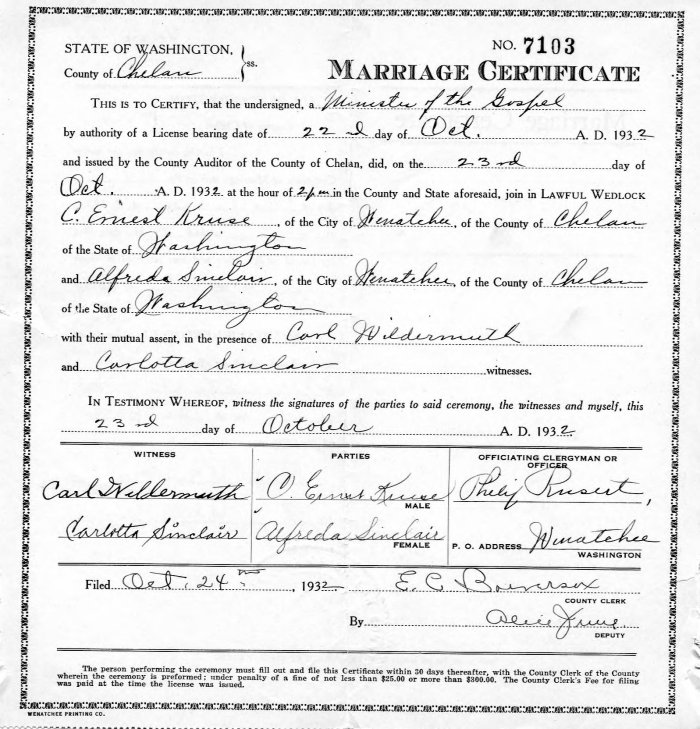 NO. 7103
STATE OF WASHINGTON,
County of Chelan ss.
MARRIAGE CERTIFICATE
THIS IS TO CERTIFY, that the undersigned, a Minister of the Gospel
by authority of a License bearing date of 22d day of Oct. A. D. 1932
and issued by the County Auditor of the County of Chelan, did, on the 23rd day of
Oct. A. D. 1932 at the hour of 2 pm in the County and State aforesaid, join in LAWFUL WEDLOCK
C. Ernest Kruse, of the City of Wenatchee, of the County of Chelan
of the State of Washington
and Alfreda Sinclair, of the City of Wenatchee, of the County of Chelan
of the State of Washington
with their mutual assent, in the presence of Carl Wildermuth
and Carlotta Sinclair witnesses.
IN TESTIMONY WHEREOF, witness the signatures of the parties to said ceremony, the witnesses and myself, this
23rd day of October A. D. 1932
WITNESS PARTIES OFFICIATING CLERGYMAN OR OFFICER
Carl Wildermuth C. Ernest Kruse Philip
MALE
Carlotta Sinclair Alfreda Sinclair P. O. ADDRESS Wenatchee
FEMALE WASHINGTON
Filed Oct. 24 , 1932 E. C.
COUNTY CLERK
By Alice
DEPUTY
The person performing the ceremony must fill out and file this Certificate within 30 days thereafter, with the County Clerk of the County
wherein the ceremony is preformed; under penalty of a fine of not less than $25.00 or more than $300.00. The County Clerk's Fee for filing
was paid at the time the license was issued.
WENATCHEE PRINTING CO.